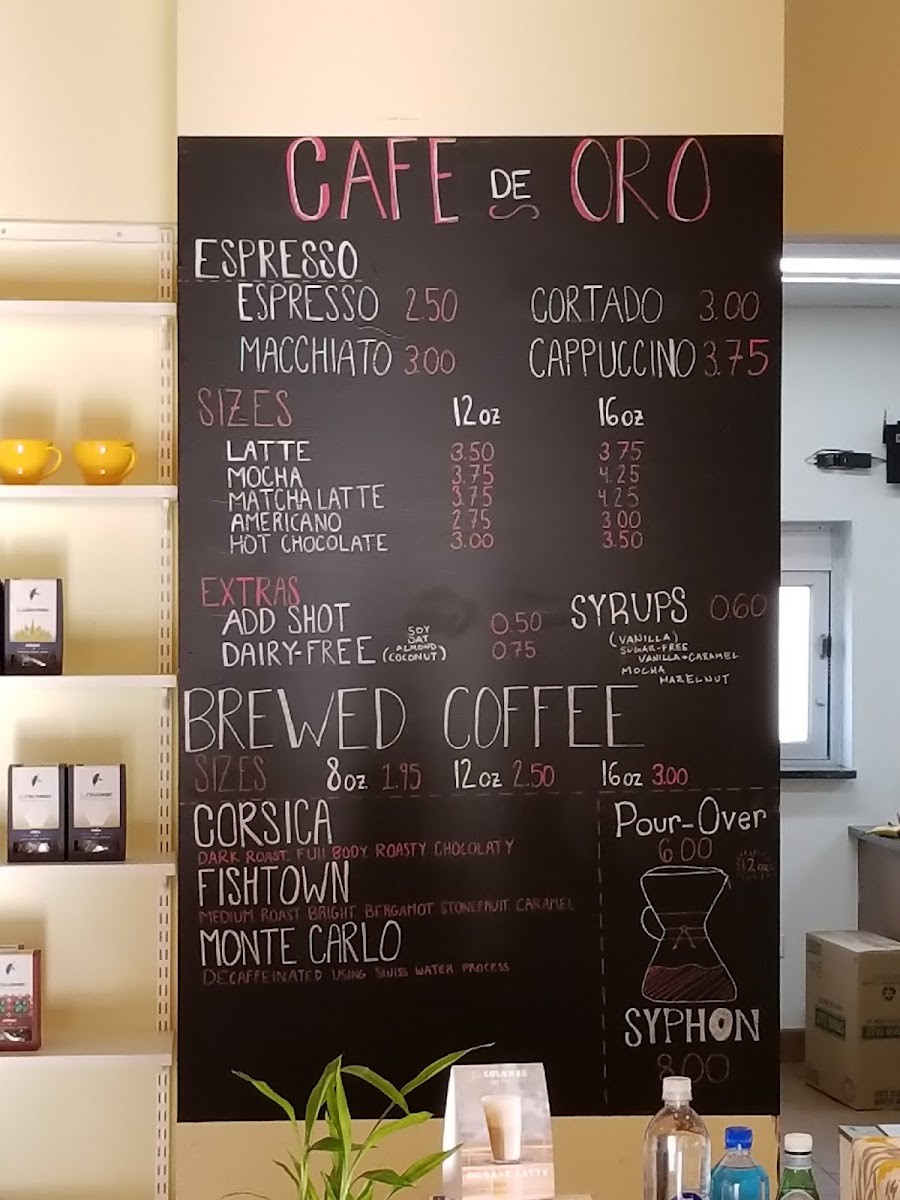 CAFE DE ORO
ESPRESSO
ESPRESSO 2.50 CORTADO 3.00
MACCHIATO 3.00 CAPPUCCINO 3.75
SIZES 12oz 16oz
LATTE 3.50 3.75
MOCHA 3.75 4.25
MATCHA LATTE 3.75 4.25
AMERICANO 2.75 3.00
HOT CHOCOLATE 3.00 3.50
EXTRAS
ADD SHOT 0.50
DAIRY-FREE (SOY
OAT
ALMOND
COCONUT) 0.75
SYRUPS 0.60
(VANILLA)
SUGAR-FREE
VANILLA • CARAMEL
MOCHA
HAZELNUT
BREWED COFFEE
SIZES 8oz 1.95 12oz 2.50 16oz 3.00
CORSICA
DARK ROAST. FUll BODY ROASTY CHOCOLATY
FISHTOWN
MEDIUM ROAST BRIGHT BERGAMOT STONEFRUIT CARAMEL
MONTE CARLO
DECAFFEINATED USING SWISS WATER PROCESS
Pour-Over
6.00
12oz
SYPHON
8.00
DRAFT LATTE